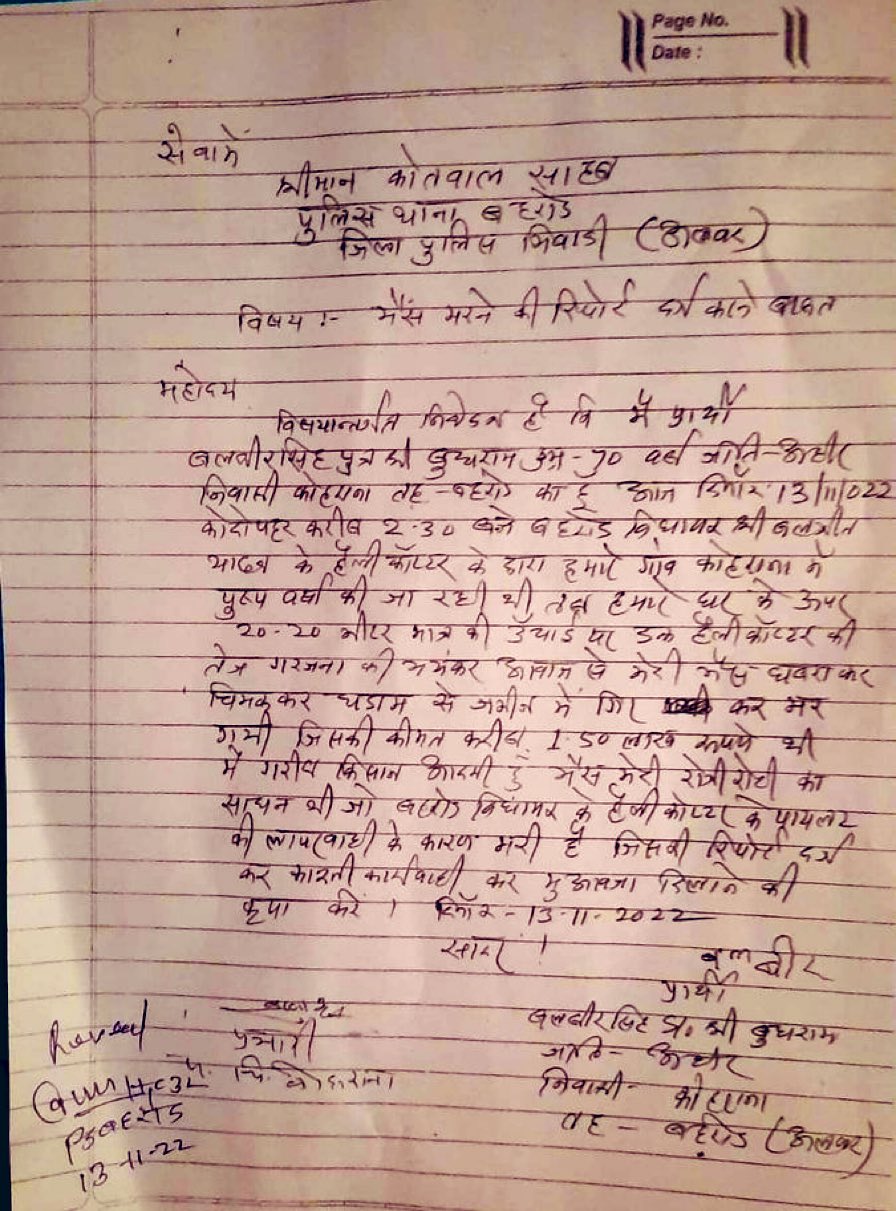 Page No.
Date :
सेवामें
श्रीमान कोतवाल साहब
पुलिस थाना बहरोड
जिला पुलिस भिवाडी (अलवर)
विषय :- भैंस मरने की रिपोर्ट दर्ज कराने बाबत
महोदय
विषयान्तर्गत निवेदन है कि मैं प्रार्थी
बलवीरसिंह पुत्र श्री बुधराम उम्र-70 वर्ष जाति-अहीर
निवासी कोहराना तह-बहरोड का हूं आज दिनाँक 13/11/022
को दोपहर करीब 2-30 बजे बहरोड विधायक श्री बलजीत
यादव के हैलीकॉप्टर के द्वारा हमारे गांव कोहराना में
पुरूप वर्षा की जा रही थी तब हमारे घर के ऊपर
20-20 मीटर मात्र की उंचाई पर उनके हैलीकॉप्टर की
तेज गरजना की भयंकर आवाज से मेरी भैंस घबरा कर
चिमक कर धडाम से जमीन में गिर कर मर
गयी जिसकी कीमत करीब 1.50 लाख रूपये थी
मैं गरीब किसान आदमी हूं भैंस मेरी रोजी रोटी का
साधन थी जो बहरोड विधायक के हैलीकोप्टर के पायलट
की लापरवाही के कारण मरी है जिसकी रिपोर्ट दर्ज
कर कानूनी कार्यवाही कर मुआवजा दिलाने की
कृपा करें । दिनाँक-13-11-2022
सादर !
बलबीर
प्रार्थी
बलबीरसिंह S/o. श्री बुधराम
जाति- अहीर
निवासी- कोहराना
तह - बहरोड (अलवर)
प्रभारी
चौ. कोहराना
Received
HC 32
PS बहरोड
13-11-22